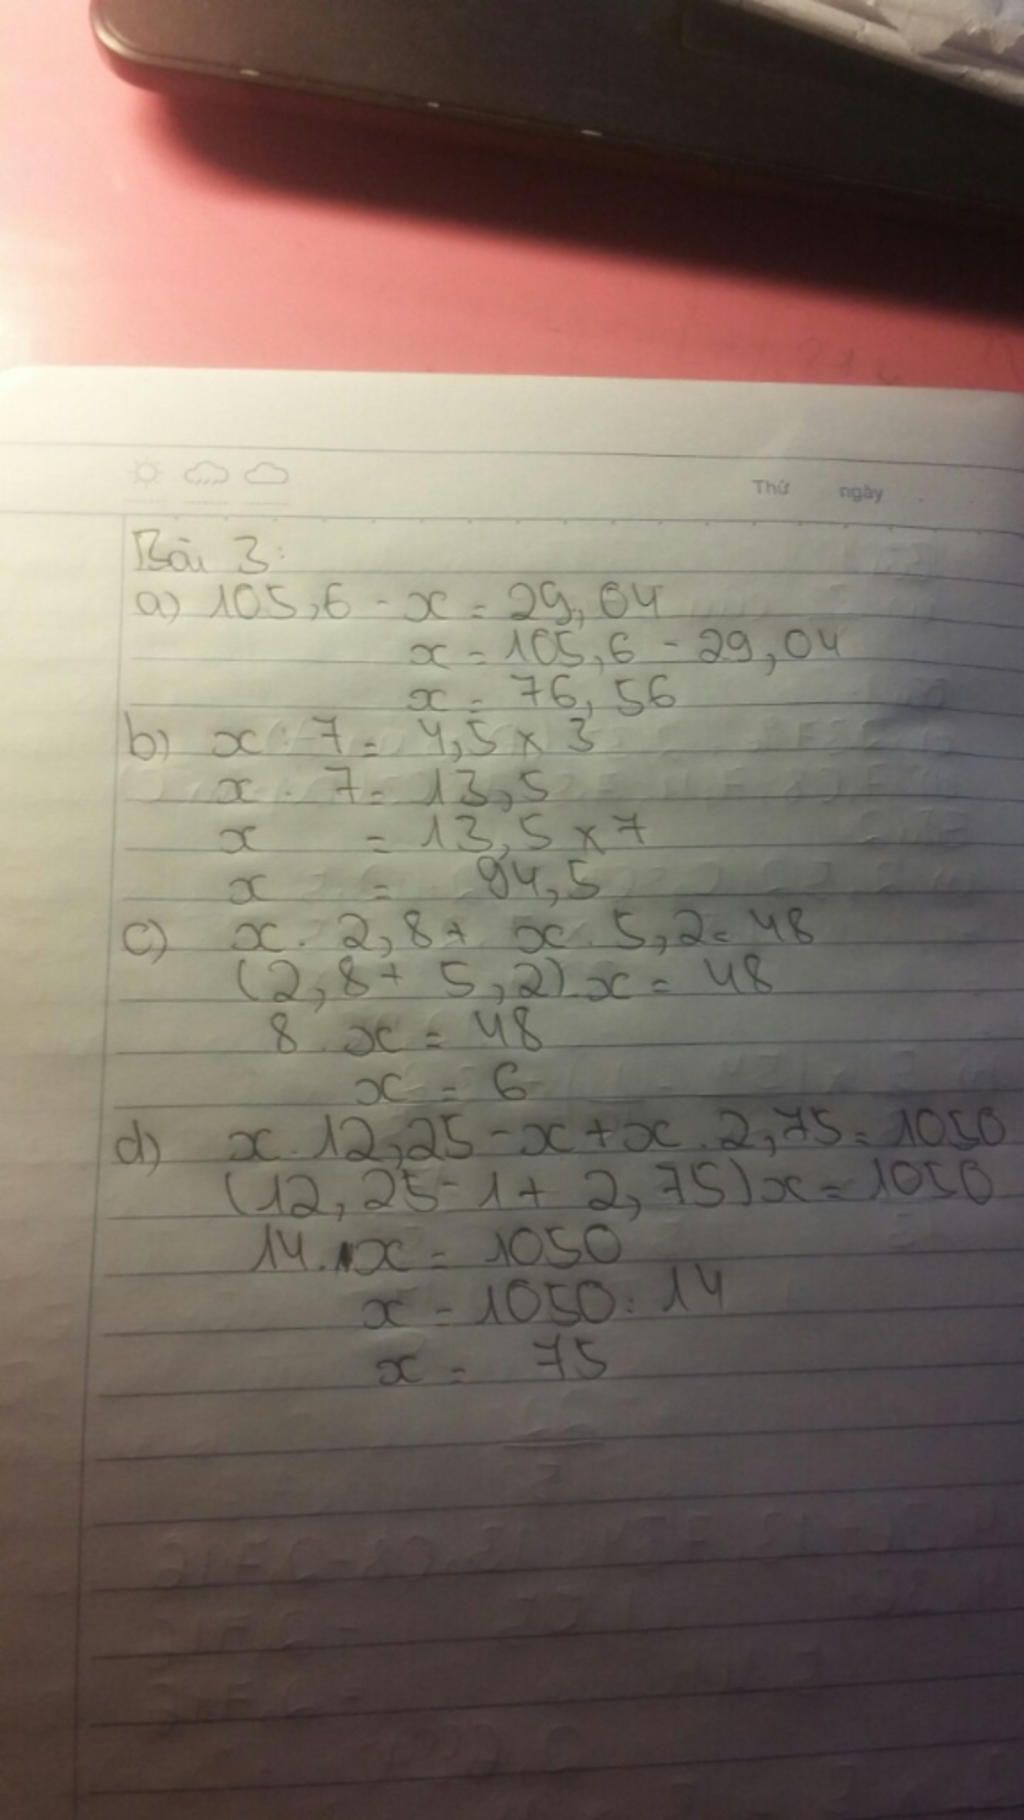 Thứ ngày
Bài 3:
a) 105,6 - x = 29,04
x = 105,6 - 29,04
x = 76,56
b) x : 7 = 4,5 x 3
x : 7 = 13,5
x = 13,5 x 7
x = 94,5
c) x . 2,8 + x . 5,2 = 48
(2,8 + 5,2) . x = 48
8 . x = 48
x = 6
d) x . 12,25 - x + x . 2,75 = 1050
(12,25 - 1 + 2,75) x = 1050
14 . x = 1050
x = 1050 : 14
x = 75